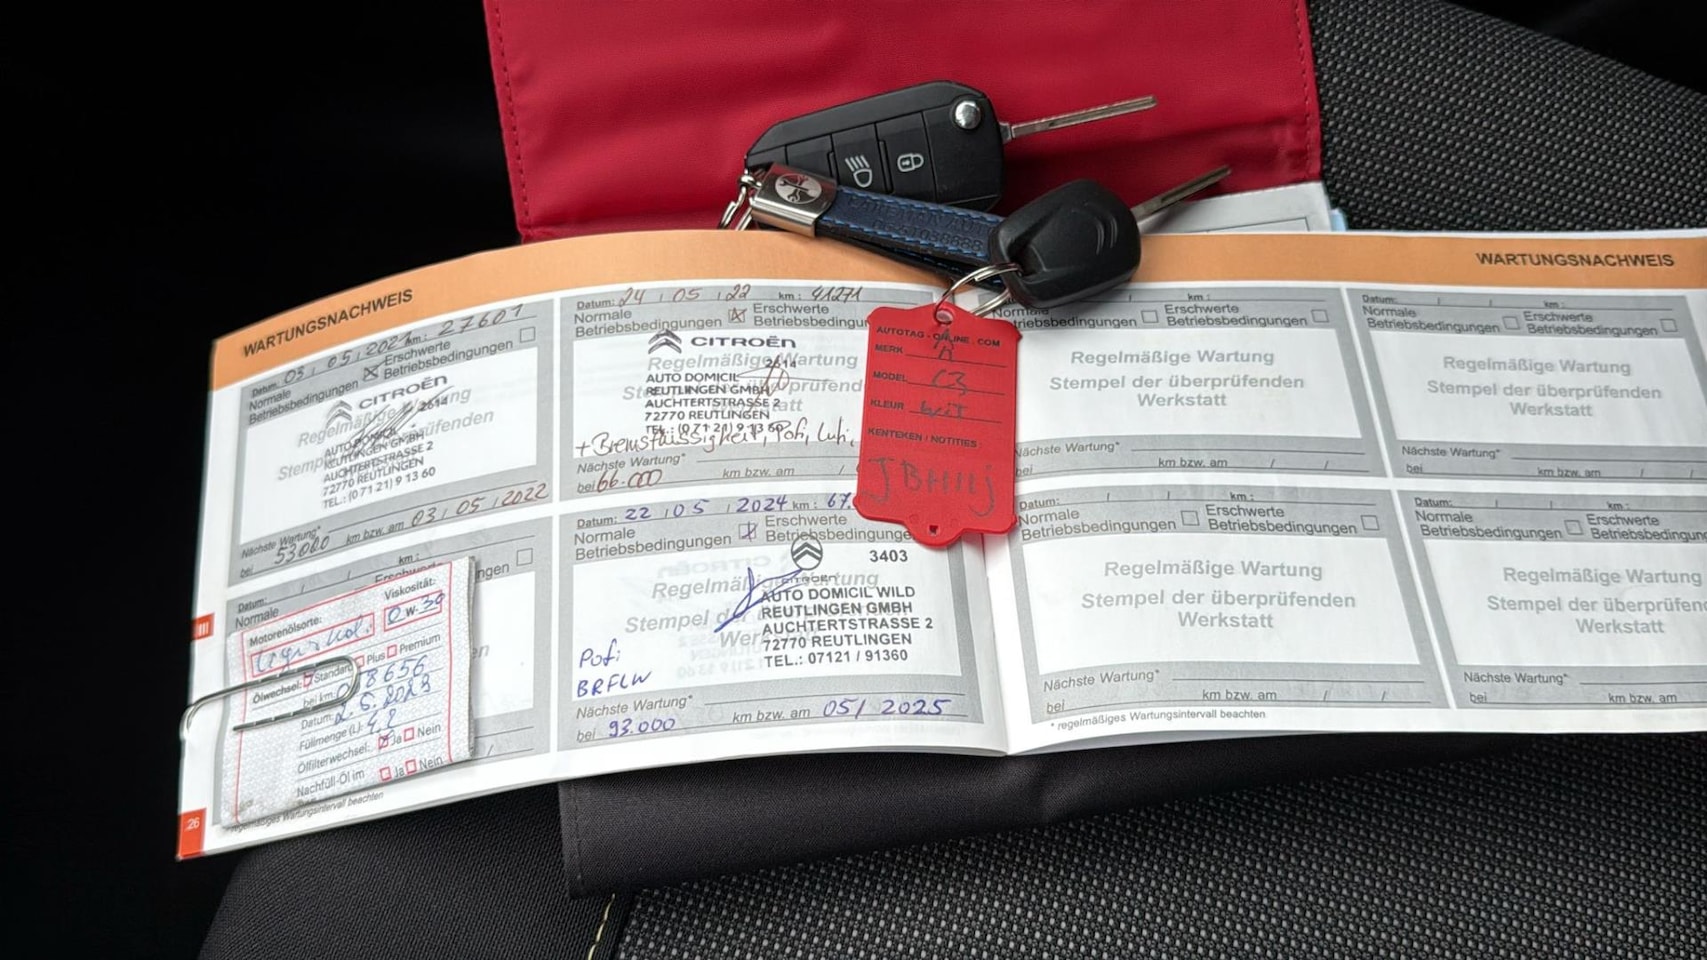 WARTUNGSNACHWEIS
Datum: 03 , 05 , 2021 km: 27601
Normale
Betriebsbedingungen
Erschwerte
Betriebsbedingungen
CITROËN
2614
AUTO DOMICIL
REUTLINGEN GMBH
AUCHTERTSTRASSE 2
72770 REUTLINGEN
TEL.: (0 71 21) 9 13 60
Nächste Wartung*
bei 53000 km bzw. am 03 / 05 / 2022
Datum: 24 , 05 , 22 km: 41271
Normale
Betriebsbedingungen
Erschwerte
Betriebsbedingu
CITROËN
2614
Regelmäßige Wartung
AUTO DOMICIL
REUTLINGEN GMBH
AUCHTERTSTRASSE 2
72770 REUTLINGEN
TEL.: (0 71 21) 9 13 60
+ Bremsflüssigkeit, Pofi, Lufi,
Nächste Wartung*
bei 66.000 km bzw. am /
Datum: / / km:
Normale
Motorenölsorte:
Viskosität:
0 W-30
Ölwechsel: Standard Plus Premium
bei km:
Datum: 2.6.2023
Füllmenge (L):
Ölfilterwechsel: Ja Nein
Nachfüll-Öl im Ja Nein
* regelmäßiges Wartungsintervall beachten
Datum: 22 , 05 , 2024 km: 67.
Normale
Betriebsbedingungen
Erschwerte
Betriebsbedingungen
3403
CITROËN
Regelmäßige Wartung
AUTO DOMICIL WILD
REUTLINGEN GMBH
AUCHTERTSTRASSE 2
72770 REUTLINGEN
TEL.: 07121 / 91360
Pofi
BRFLW
Nächste Wartung*
bei 93.000 km bzw. am 05/ 2025
III
26
AUTOTAG-ONLINE.COM
MERK
MODEL C3
KLEUR wit
KENTEKEN / NOTITIES:
WARTUNGSNACHWEIS
km:
Normale
Betriebsbedingungen
Erschwerte
Betriebsbedingungen
Regelmäßige Wartung
Stempel der überprüfenden
Werkstatt
Nächste Wartung*
bei km bzw. am / /
Datum: / / km:
Normale
Betriebsbedingungen
Erschwerte
Betriebsbedingungen
Regelmäßige Wartung
Stempel der überprüfenden
Werkstatt
Nächste Wartung*
bei km bzw. am
/ / km:
Normale
Betriebsbedingungen
Erschwerte
Betriebsbedingungen
Regelmäßige Wartung
Stempel der überprüfenden
Werkstatt
Nächste Wartung*
bei km bzw. am / /
* regelmäßiges Wartungsintervall beachten
Datum: / / km:
Normale
Betriebsbedingungen
Erschwerte
Betriebsbedingun
Regelmäßige Wartun
Stempel der überprüfen
Werkstatt
Nächste Wartung*
bei km bzw. am